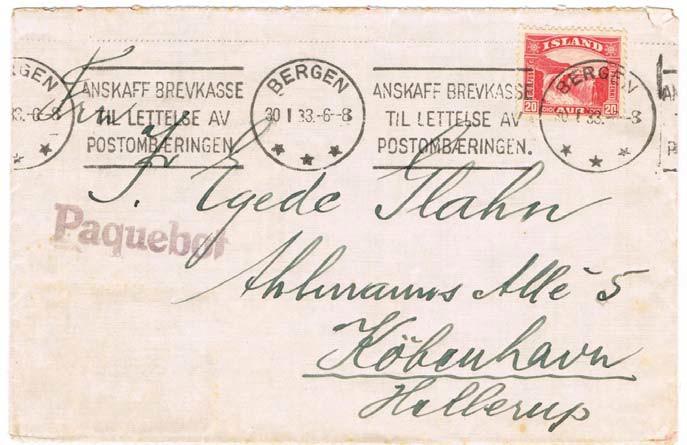 ISLAND
20 AUR 20
BERGEN
33.-6-8
ANSKAFF BREVKASSE
TIL LETTELSE AV
POSTOMBÆRINGEN.
BERGEN
30 I 33.-6-8
ANSKAFF BREVKASSE
TIL LETTELSE AV
POSTOMBÆRINGEN.
BERGEN
I 33. -8
AN
Fru
F. Egede Glahn
Paquebot
Ahlmanns Allé 5
København
Hellerup